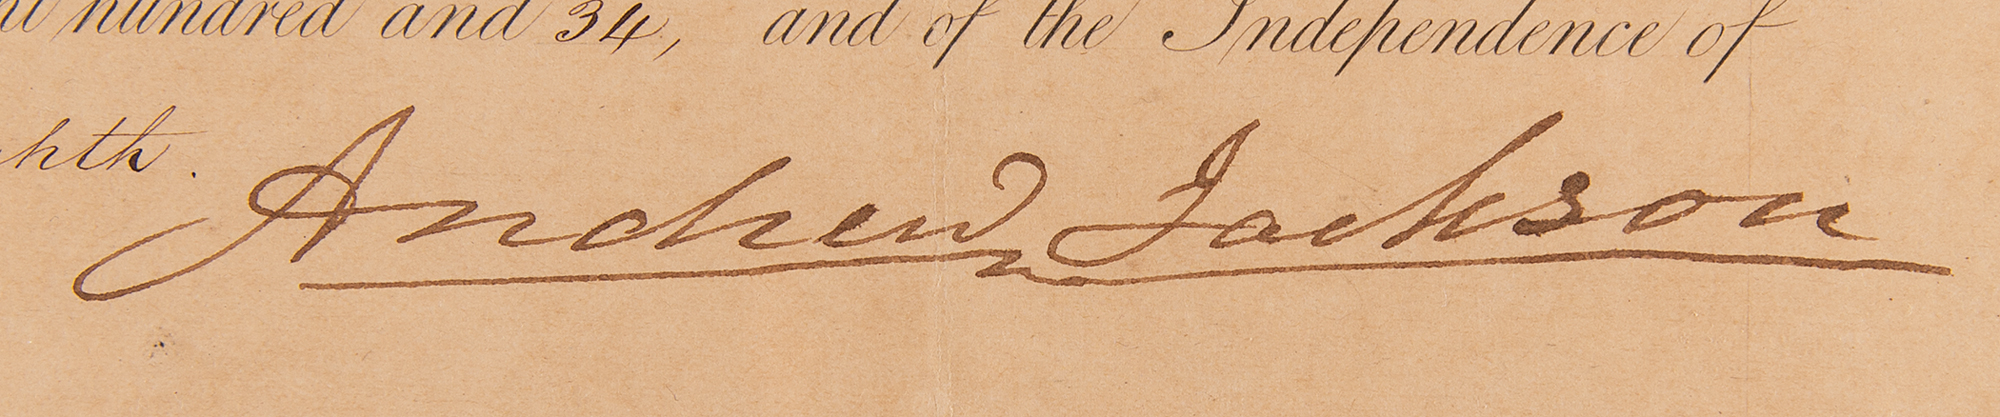 hundred and 34, and of the Independence of
hth.
Andrew Jackson